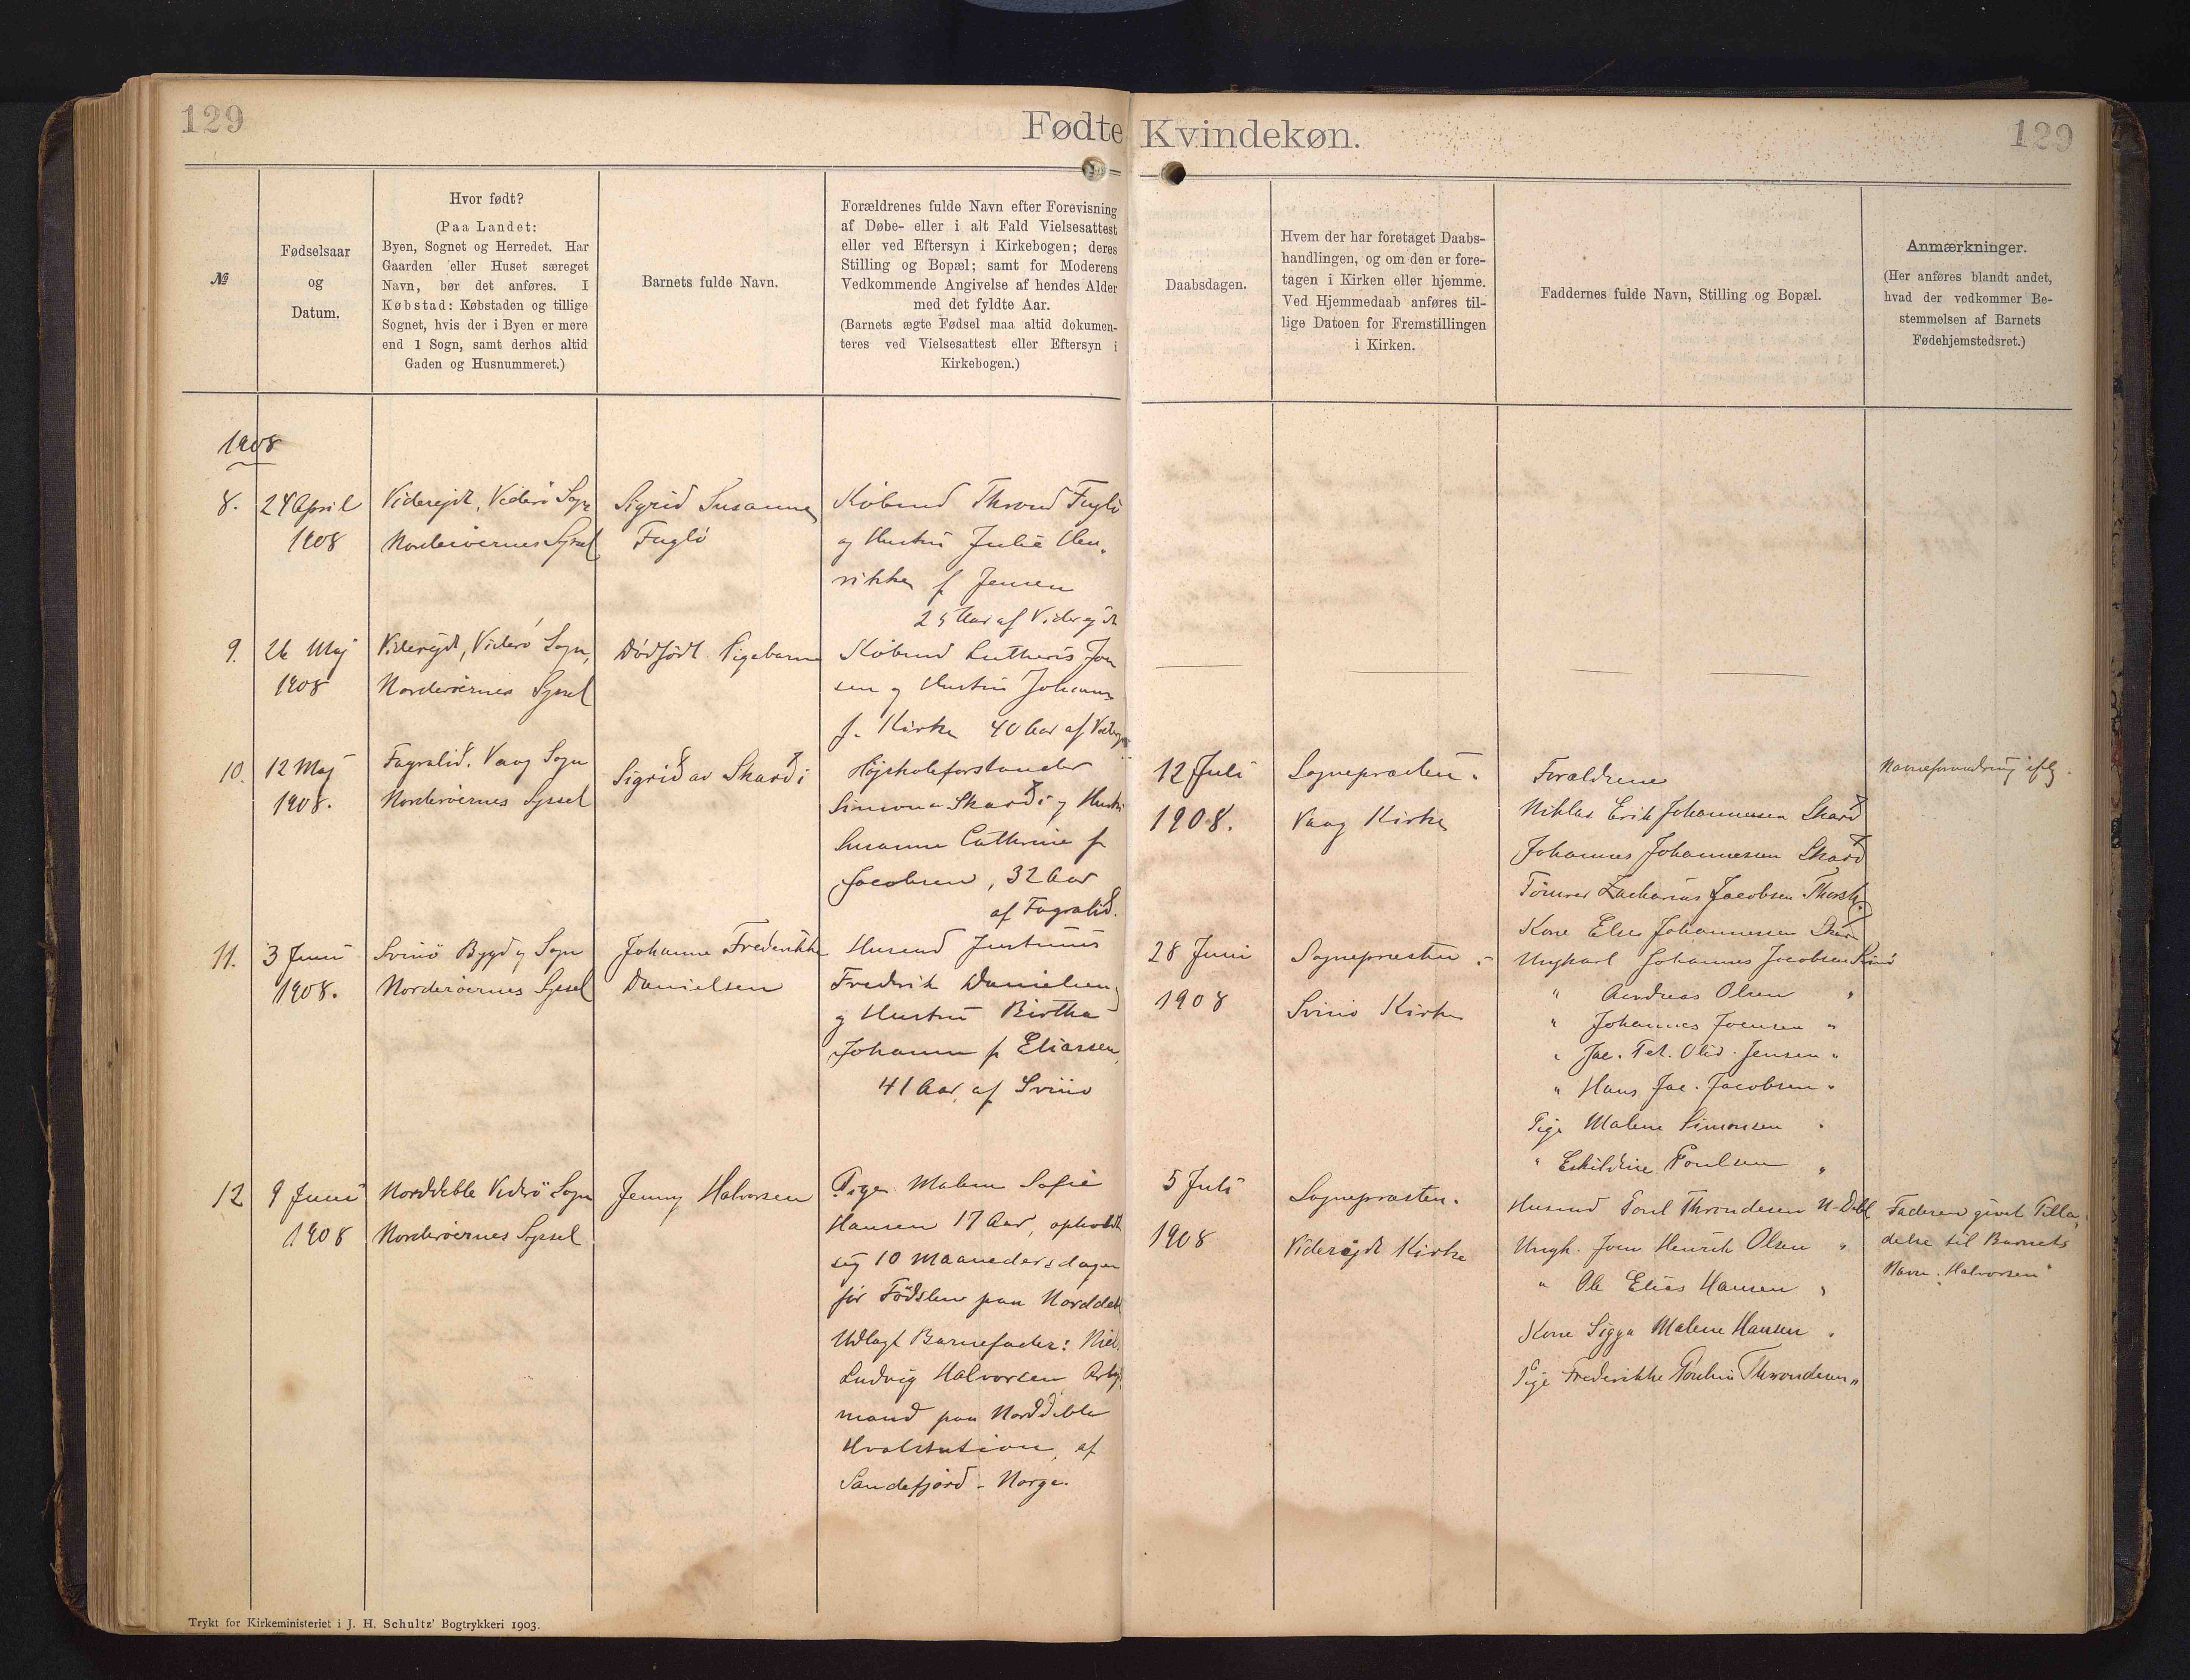 129
Fødte Kvindekøn.
129
№
Fødselsaar
og
Datum.
Hvor født?
(Paa Landet:
Byen, Sognet og Herredet. Har
Gaarden eller Huset særeget
Navn, bør det anføres. I
Købstad: Købstaden og tillige
Sognet, hvis der i Byen er mere
end 1 Sogn, samt derhos altid
Gaden og Husnummeret.)
Barnets fulde Navn.
Forældrenes fulde Navn efter Forevisning
af Døbe- eller i alt Fald Vielsesattest
eller ved Eftersyn i Kirkebogen; deres
Stilling og Bopæl; samt for Moderens
Vedkommende Angivelse af hendes Alder
med det fyldte Aar.
(Barnets ægte Fødsel maa altid dokumen-
teres ved Vielsesattest eller Eftersyn i
Kirkebogen.)
Daabsdagen.
Hvem der har foretaget Daabs-
handlingen, og om den er fore-
tagen i Kirken eller hjemme.
Ved Hjemmedaab anføres til-
lige Datoen for Fremstillingen
i Kirken.
Faddernes fulde Navn, Stilling og Bopæl.
Anmærkninger.
(Her anføres blandt andet,
hvad der vedkommer Be-
stemmelsen af Barnets
Fødehjemstedsret.)
1908
8.
24 April
1908
Viderejdt, Viderö Sogn
Norderöernes Syssel
Sigrid Susanne
Fuglö
Köbmd Thrond Fuglö
og Hustru Julie Hen-
rikke f Jensen
25 Aar af Viderejdt
9.
26 Maj
1908
Viderejdt, Viderö Sogn,
Norderöernes Syssel
Dödfödt Pigebarn
Köbmd Lutheris Joen
sen og Hustru Johanne
f. Kirke 40 Aar af
10.
12 Maj
1908.
Fagralið, Vaag Sogn
Norderöernes Syssel
Sigrið av Skarði
Højskoleforstander
Simon a Skarði og Hustru
Susanne Cathrine f
Jacobsen, 32 Aar
af Fagralid.
12 Juli
1908.
Sognepræsten.
Vaag Kirke
Forældrene
Niklas Erik Johannesen Skard
Johannes Johannesen Skard
Tömrer Zacharias Jacobsen
Kone Else Johannesen Skard
Navneforandring
11.
3 Juni
1908.
Svinö Bygd og Sogn
Norderöernes Syssel
Johanne Frederikke
Danielsen
Husmd Justinus
Fredrik Danielsen
og Hustru Birtha
Johanne f Eliassen,
41 Aar, af Svinö
28 Juni
1908
Sognepræsten
Svinö Kirke
Ungkarl Johannes Jacobsen Svinö
" Andreas Olsen "
" Johannes Joensen "
" Jac. Pet. Jensen "
" Hans Jac. Jacobsen "
Pige Malene Simonsen "
" Eskildine Poulsen "
12
9 Juni
1908
Norddeble Viderö Sogn
Norderöernes Syssel
Jenny Halvorsen
Pige Malene Sofie
Hansen 17 Aar, opholdt
sig 10 Maanedersdagen
för Födslen paa Norddeble
Udlagt Barnefader:
Ludvig Halvorsen
mand paa Norddeble
Hvalstation, af
Sandefjord - Norge.
5 Juli
1908
Sognepræsten.
Viderejdt Kirke
Husmd Poul Throndesen N-Debl
Ungk. Joen Henrik Olsen "
" Ole Elias Hansen "
Kone Sigga Malene Hansen "
Pige Frederikke Throndesen "
Faderen givet Tilla-
delse til Barnets
Navn: "Halvorsen"
Trykt for Kirkeministeriet i J. H. Schultz' Bogtrykkeri 1903.